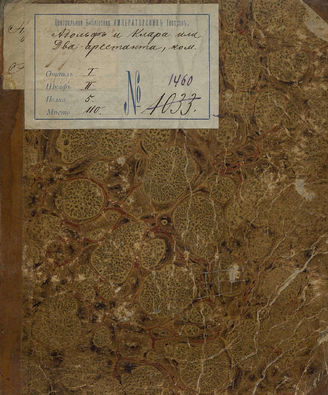 Центральная Библіотека ИМПЕРАТОРСКИХЪ Театровъ.
Адольфъ и Клара или
Два арестанта, ком.
Отдѣлъ I.
Шкафъ II
Полка 5.
Мѣсто 110.
№ 1460
4033